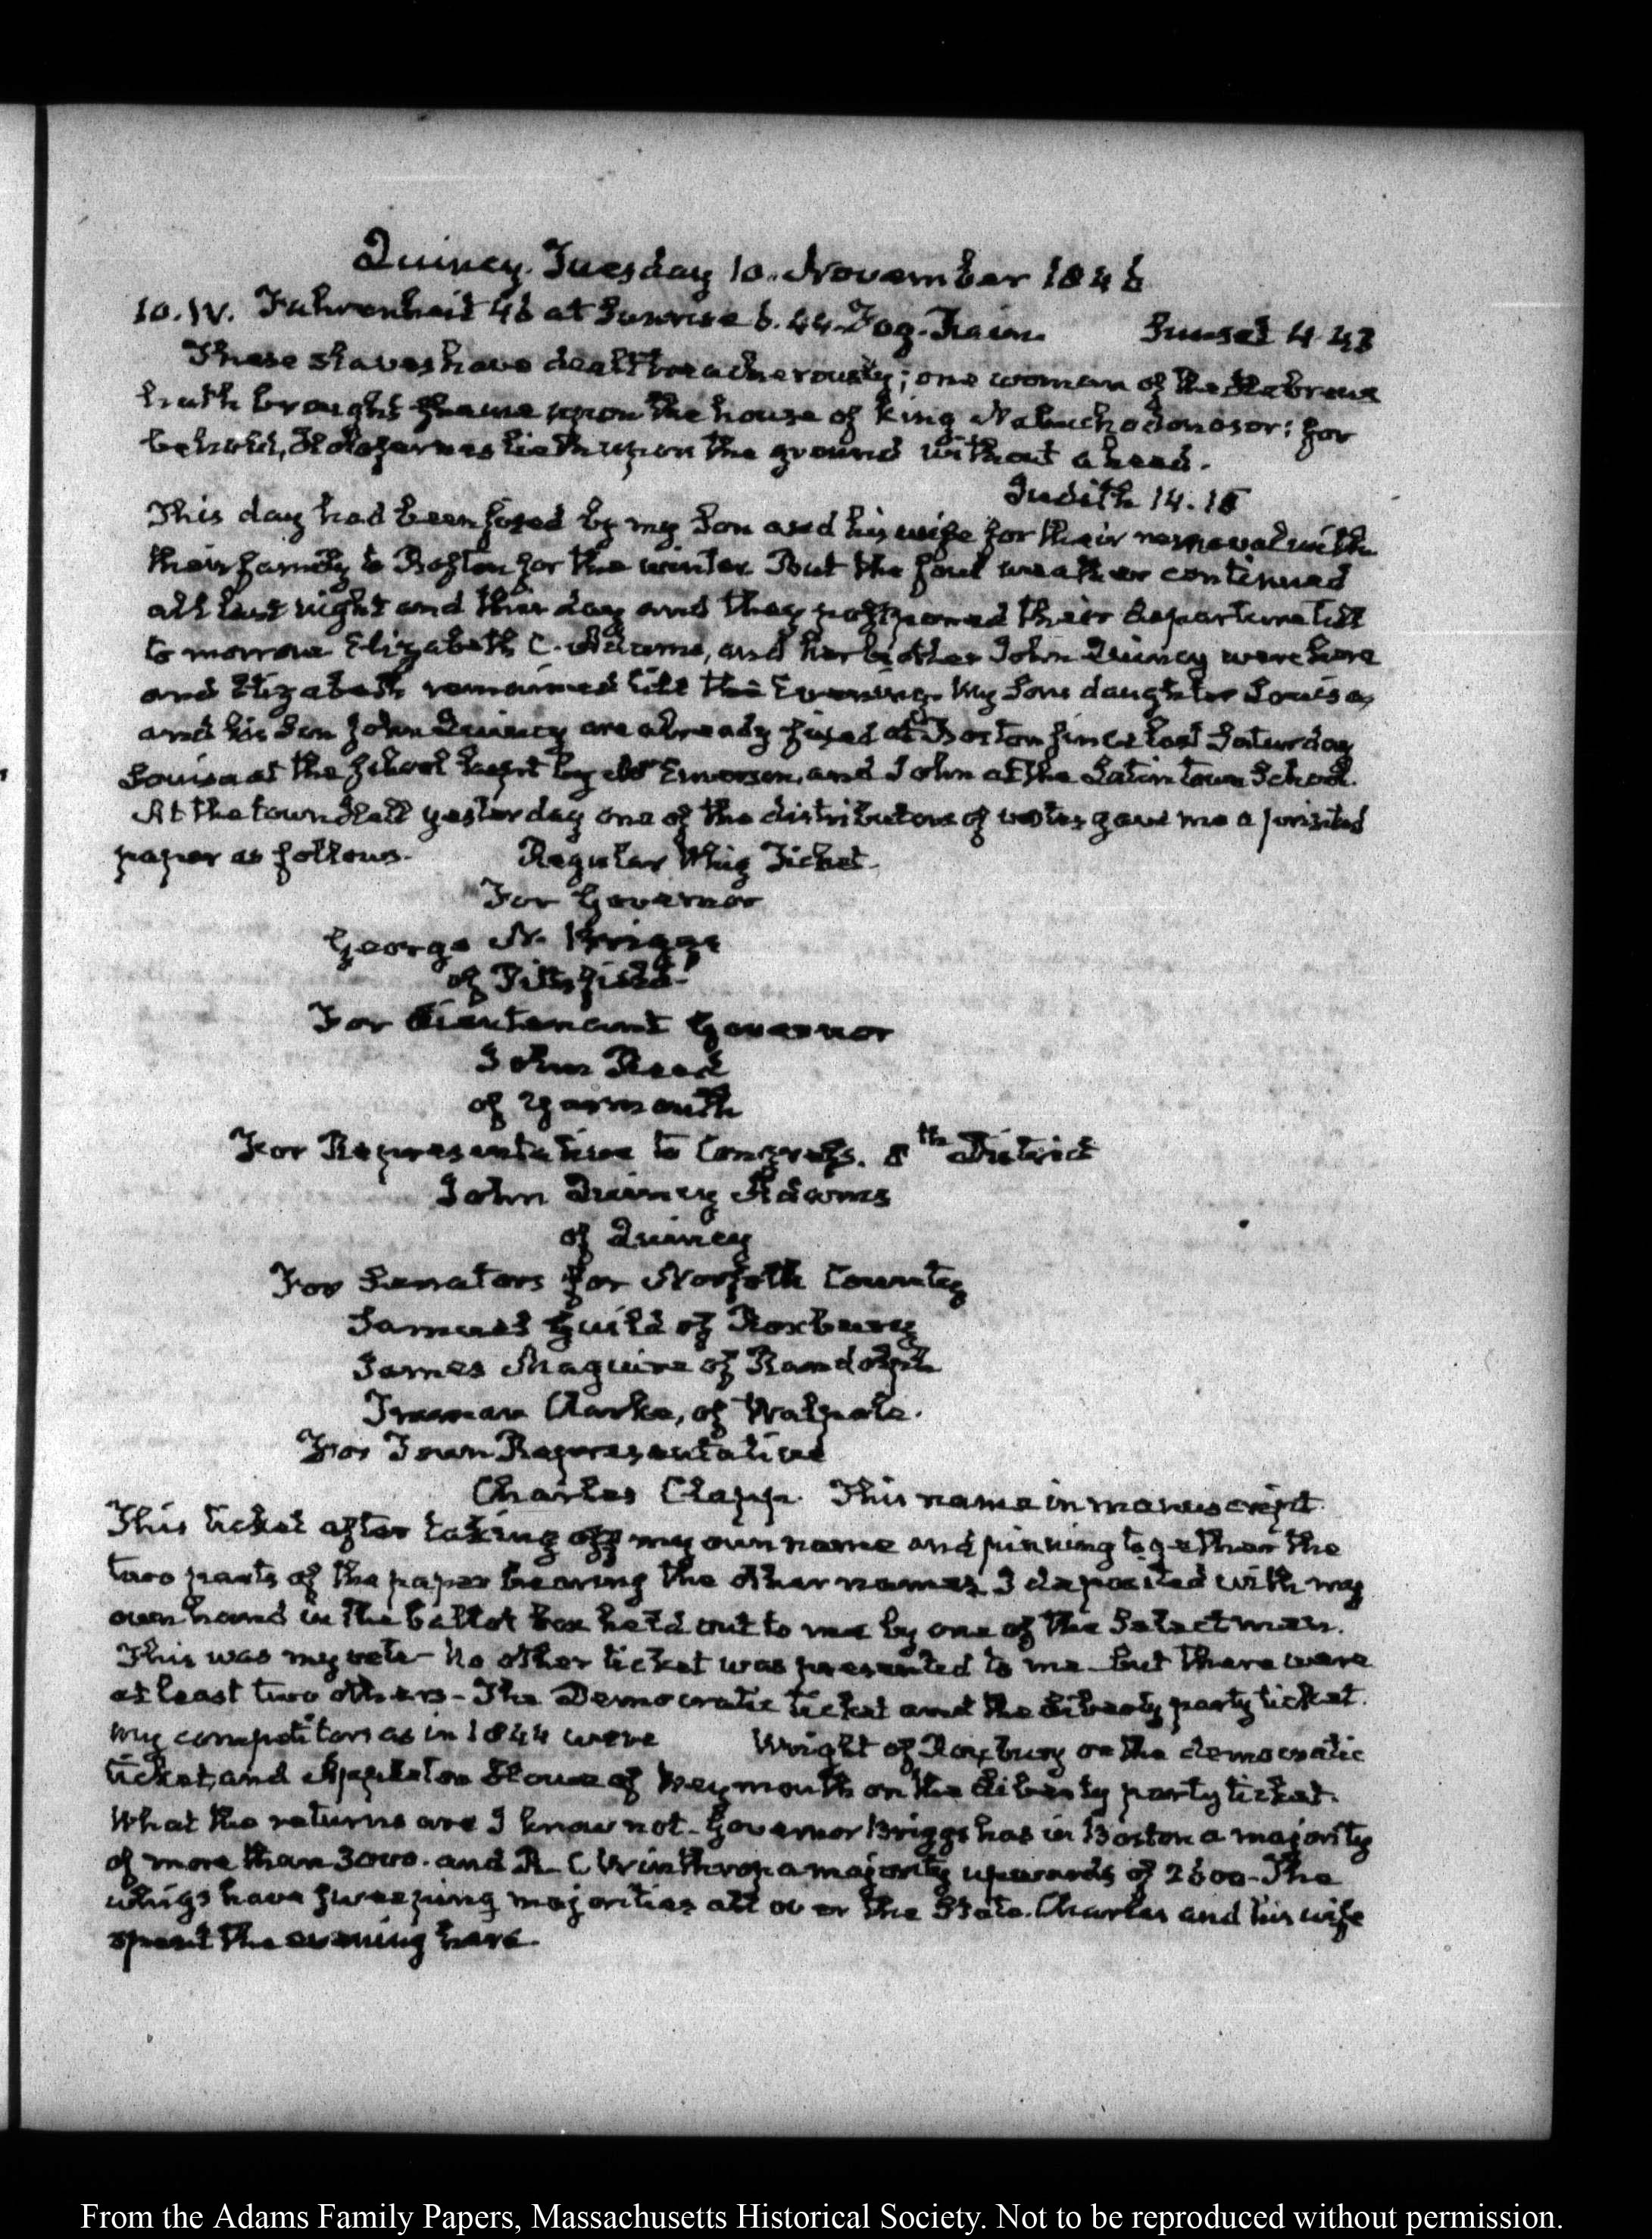 Quincy. Tuesday 10. November 1846
10. IV. Fahrenheit 46 at Sunrise 6.44. Fog. Rain. Sunset 4.43
These slaves have dealt treacherously; one woman of the Hebrews
hath brought shame upon the house of king Nabuchodonosor: for
behold, Holofernes lieth upon the ground without a head.
Judith 14.18
This day had been fixed by my Son and his wife for their removal with
their family to Boston for the winter. But the foul weather continued
all last night and this day and they postponed their departure till
to morrow Elizabeth C. Adams, and her brother John Quincy were here
and Elizabeth remained till the Evening. My Sons daughter Louisa,
and his Son John Quincy are already fixed at Boston since last Saturday
Louisa at the school kept by Mr Emerson, and John at the Latin town School.
At the town Hall yesterday one of the distributors of votes gave me a printed
paper as follows. Regular Whig Ticket.
For Governor
George N. Briggs
of Pittsfield.
For Lieutenant Governor
John Reed
of Yarmouth
For Representative to Congress. 8th District
John Quincy Adams
of Quincy
For Senators for Norfolk County
Samuel Guild of Roxbury
James Maguire of Randolph
Truman Clarke, of Walpole.
For Town Representative
Charles Clapp. This name in manuscript.
This ticket after taking off my own name and pinning together the
two parts of the paper bearing the other names, I deposited with my
own hand in the ballot box held out to me by one of the Selectmen.
This was my vote– No other ticket was presented to me– but there were
at least two others– The Democratic ticket and the liberty party ticket.
My competitors as in 1844 were Wright of Roxbury on the democratic
ticket, and Appleton Howe of Weymouth on the liberty party ticket.
What the returns are I know not– Governor Briggs has in Boston a majority
of more than 3000. and R. C Winthrop a majority upwards of 2600– The
whigs have sweeping majorities all over the State. Charles and his wife
spent the evening here.
From the Adams Family Papers, Massachusetts Historical Society. Not to be reproduced without permission.